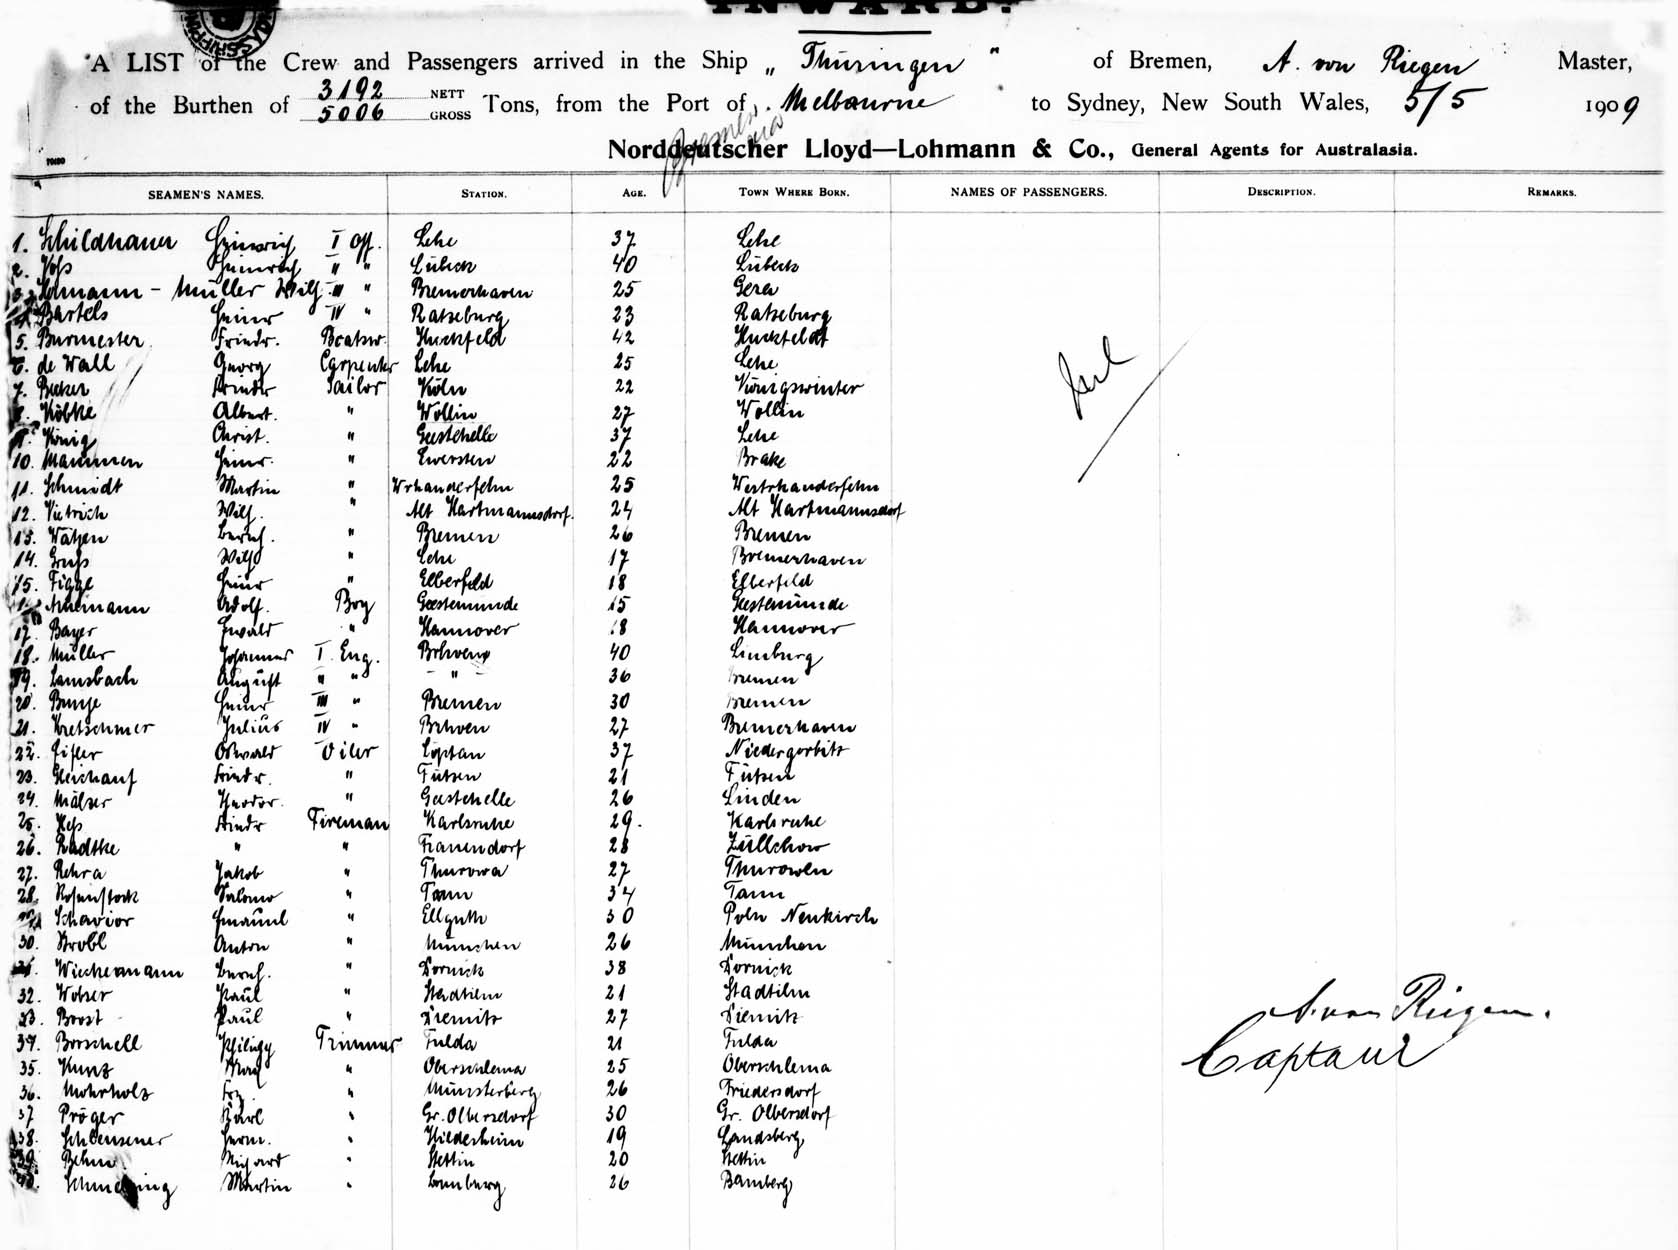 INWARD.
A LIST of the Crew and Passengers arrived in the Ship „ Thüringen " of Bremen, A. von Riegen Master,
of the Burthen of 3192 NETT 5006 GROSS Tons, from the Port of Melbourne to Sydney, New South Wales, 5/5 1909
Bremen via
Norddeutscher Lloyd—Lohmann & Co., General Agents for Australasia.
SEAMEN'S NAMES. STATION. AGE. TOWN WHERE BORN. NAMES OF PASSENGERS. DESCRIPTION. REMARKS.
1. Schildhauer Heinrich I Off. Lehe 37 Lehe
2. Voß Heinrich " " Lübeck 40 Lübeck
3. - Müller Wilh. III " Bremerhaven 25 Gera
4. Bartels Heinr IV " Ratzeburg 23 Ratzeburg
5. Burmester Friedr. Boatsw. Huckfeld 42 Huckfeldt
6. de Wall Georg Carpenter Lehe 25 Lehe
7. Becker Friedr Sailor Köln 22 Königswinter
8. Köbke Albert. " Wollin 27 Wollin
9. König Christ. " Geestehelle 37 Lehe
10. Mammen Heinr. " Ewersten 22 Brake
11. Schmidt Martin " Wrhanderfehn 25 Westrhanderfehn
12. Vietrich Wilh. " Alt Hartmannsdorf. 24 Alt Hartmannsdorf
13. Wätjen Bernh. " Bremen 26 Bremen
14. Gruß Wilh " Lehe 17 Bremerhaven
15. Figge Heinr " Elberfeld 18 Elberfeld
Adolf. Boy Geestemünde 15 Geestemünde
17. Bayer Ewald " Hannover 18 Hannover
18. Müller Johannes I. Eng. Brhven 40 Limburg
19. Lamsbach August II " - " - 36 Bremen
20. Bunje Heinr III " Bremen 30 Bremen
21. Kretschmer Julius IV " Brhven 27 Bremerhaven
22. Eifler Oswald Oiler Löptau 37 Niedergorbitz
23. Gleichauf Friedr. " Fützen 21 Fützen
24. Mälzer Theodor. " Geestehelle 26 Linden
25. Heß Friedr Fireman Karlsruhe 29. Karlsruhe
26. Radtke " " Frauendorf 28 Züllchow
27. Rehra Jakob " Thurowa 27 Thurowen
28. Rosenstock Salomo " Tann 34 Tann
29. Schavior Emanuel " Ellguth 30 Poln Neukirch
30. Strobl Anton " München 26 München
31. Wiechermann Bernh. " Dornick 38 Dornick
32. Wolser Paul " Stadtilm 21 Stadtilm
33. Boost Paul " Diemitz 27 Diemitz
34. Borschell Philipp Trimmer Fulda 21 Fulda
35. Kunz Max " Oberschlema 25 Oberschlema
36. Mohrholz Frz. " Münsterberg 26 Friedersdorf
37 Pröger Karl " Gr. Olbersdorf 30 Gr. Olbersdorf
38. Schleusener Herm. " Hildesheim 19 Landsberg
39. Behm Richard " Stettin 20 Stettin
40. Martin " Bamberg 26 Bamberg
A. von Riegen.
Captain